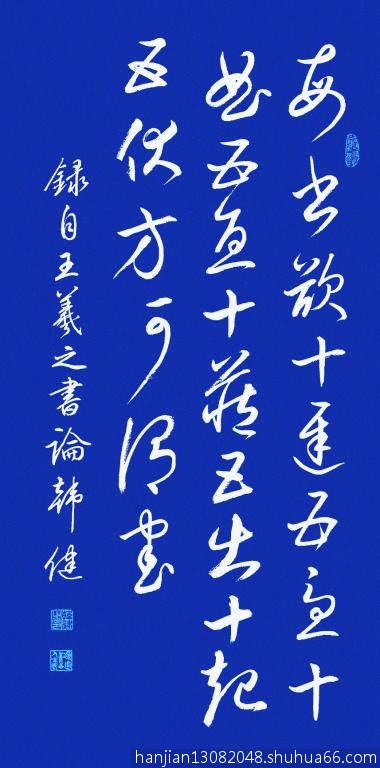 每書欲十遲五急十
曲五直十藏五出十起
五伏方可謂書
録自王羲之書論韓健
hanjian13082048.shuhua66.com